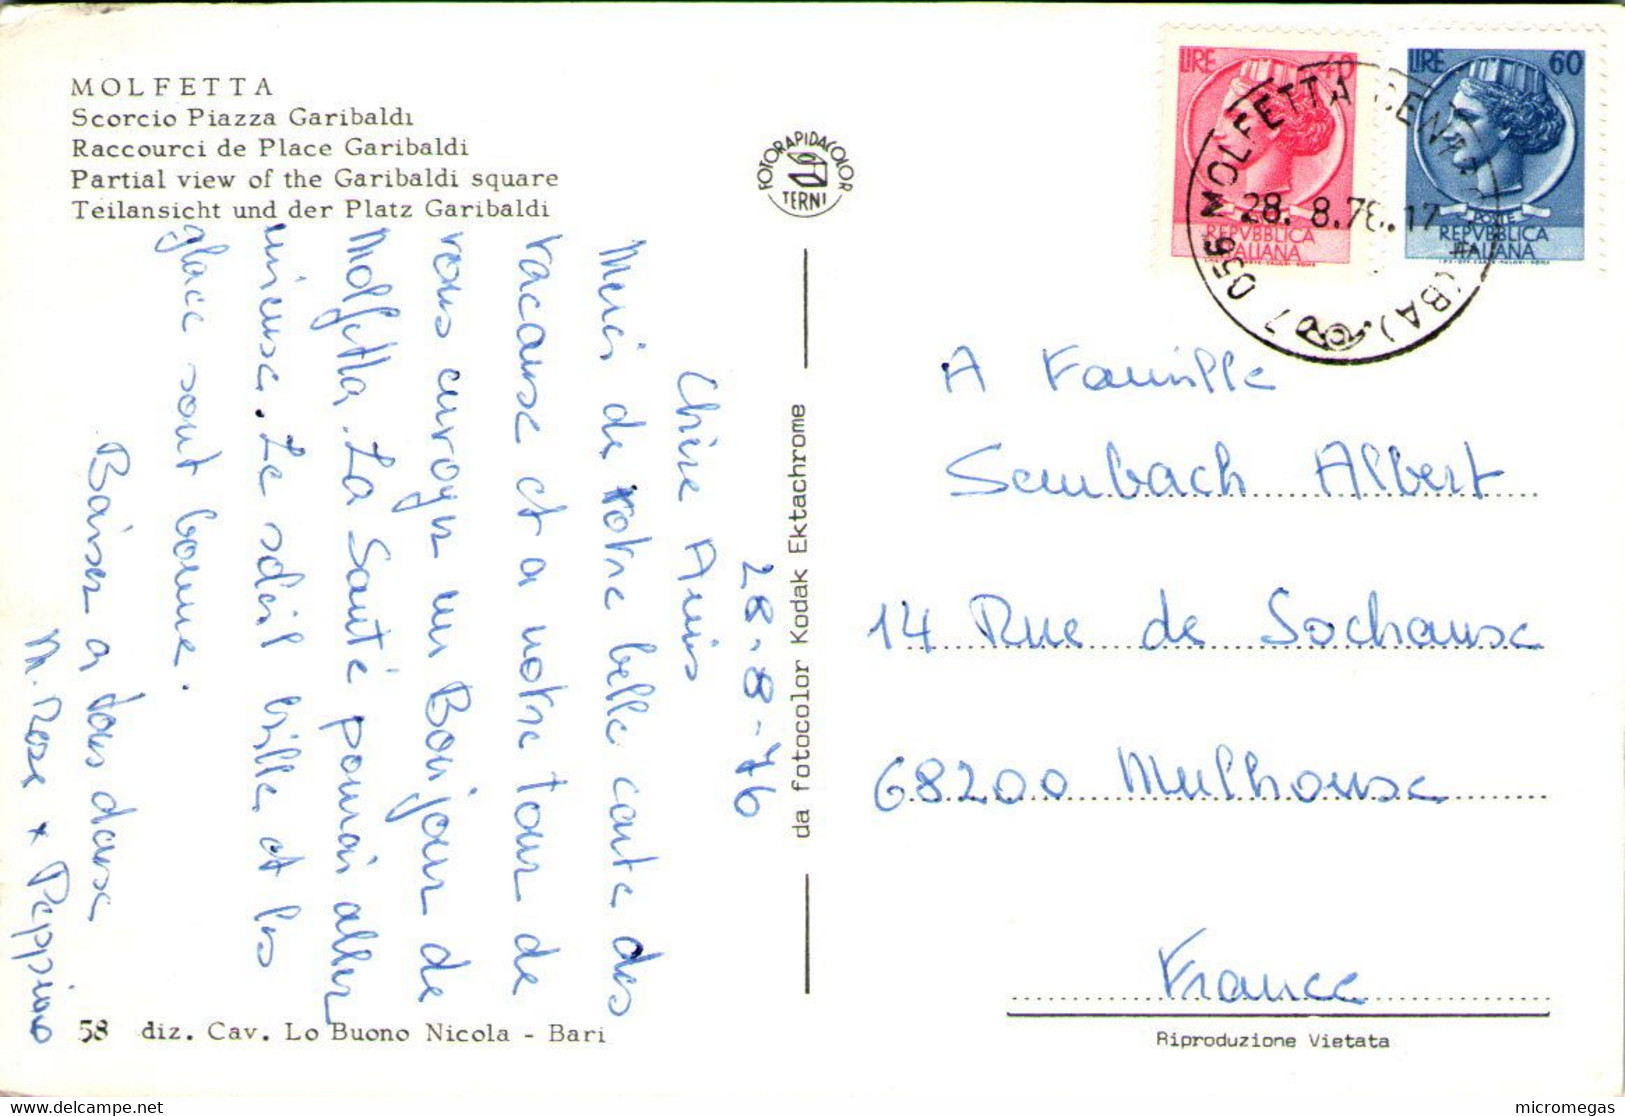 MOLFETTA
Scorcio Piazza Garibaldi
Raccourci de Place Garibaldi
Partial view of the Garibaldi square
Teilansicht und der Platz Garibaldi
FOTORAPIDACOLOR
TERNI
LIRE 40
REPVBBLICA
ITALIANA
LIRE 60
POSTE
REPVBBLICA
ITALIANA
MOLFETTA CENTRO (BA)
28. 8.76.17
28-8-76
Chère Amis
Merci de votre belle carte des
vacanse et a notre tour de
vous envoyer un Bonjour de
Molfetta. La Santé pour aller
mieuse. Le soleil brille et les
glace sont bonne.
Baiser a tous danse
M. Rose x Peppino
da fotocolor Kodak Ektachrome
A Famille
Sembach Albert
14 Rue de Sochause
68200 Mulhouse
France
58 diz. Cav. Lo Buono Nicola - Bari
Riproduzione Vietata
delcampe.net
micromegas